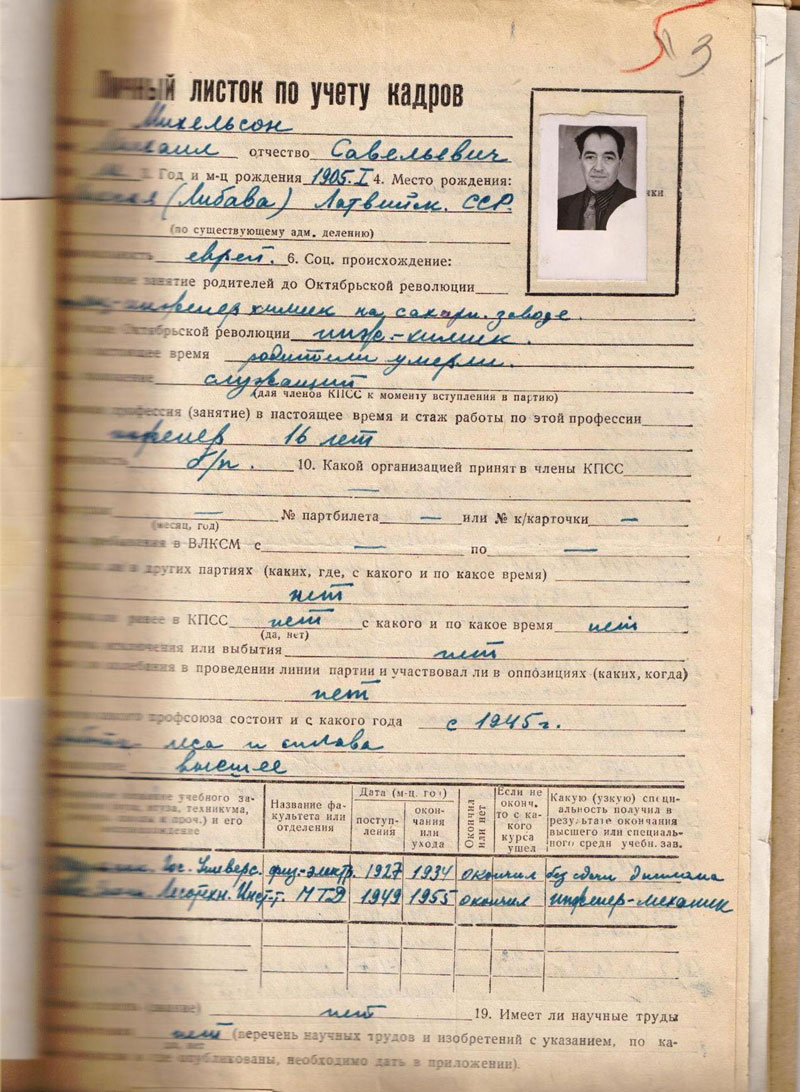 3
Личный листок по учету кадров
Михельсон
Михаил отчество Савельевич
3. Год и м-ц рождения 1905.I 4. Место рождения:
(Либава) Латвийск. ССР.
(по существующему адм. делению)
еврей. 6. Соц. происхождение:
занятие родителей до Октябрьской революции
инженер химик на сахарн. заводе.
Октябрьской революции инж.-химик.
время родители умерли.
служащий
(для членов КПСС к моменту вступления в партию)
профессия (занятие) в настоящее время и стаж работы по этой профессии
инженер 16 лет
б/п. 10. Какой организацией принят в члены КПСС
—
— № партбилета — или № к/карточки —
(месяц, год)
в ВЛКСМ с — по —
ли в других партиях (каких, где, с какого и по какое время)
нет
ранее в КПСС нет с какого и по какое время нет
(да, нет)
исключения или выбытия нет
колебания в проведении линии партии и участвовал ли в оппозициях (каких, когда)
нет
профсоюза состоит и с какого года с 1945 г.
леса и сплава
высшее
название учебного заведения, техникума, и проч.) и его
Название факультета или отделения
Дата (м-ц. год)
поступления
окончания или ухода
Окончил или нет
Если не оконч. то с какого курса ушел
Какую (узкую) специальность получил в результате окончания высшего или специального средн учебн. зав.
Гос. Универс. физ-электр. 1927 1934 окончил без сдачи диплома
Лесотехн. Инст-т. МТД 1949 1955 окончил инженер-механик
нет 19. Имеет ли научные труды
нет (перечень научных трудов и изобретений с указанием, по ка-
и где опубликованы, необходимо дать в приложении).